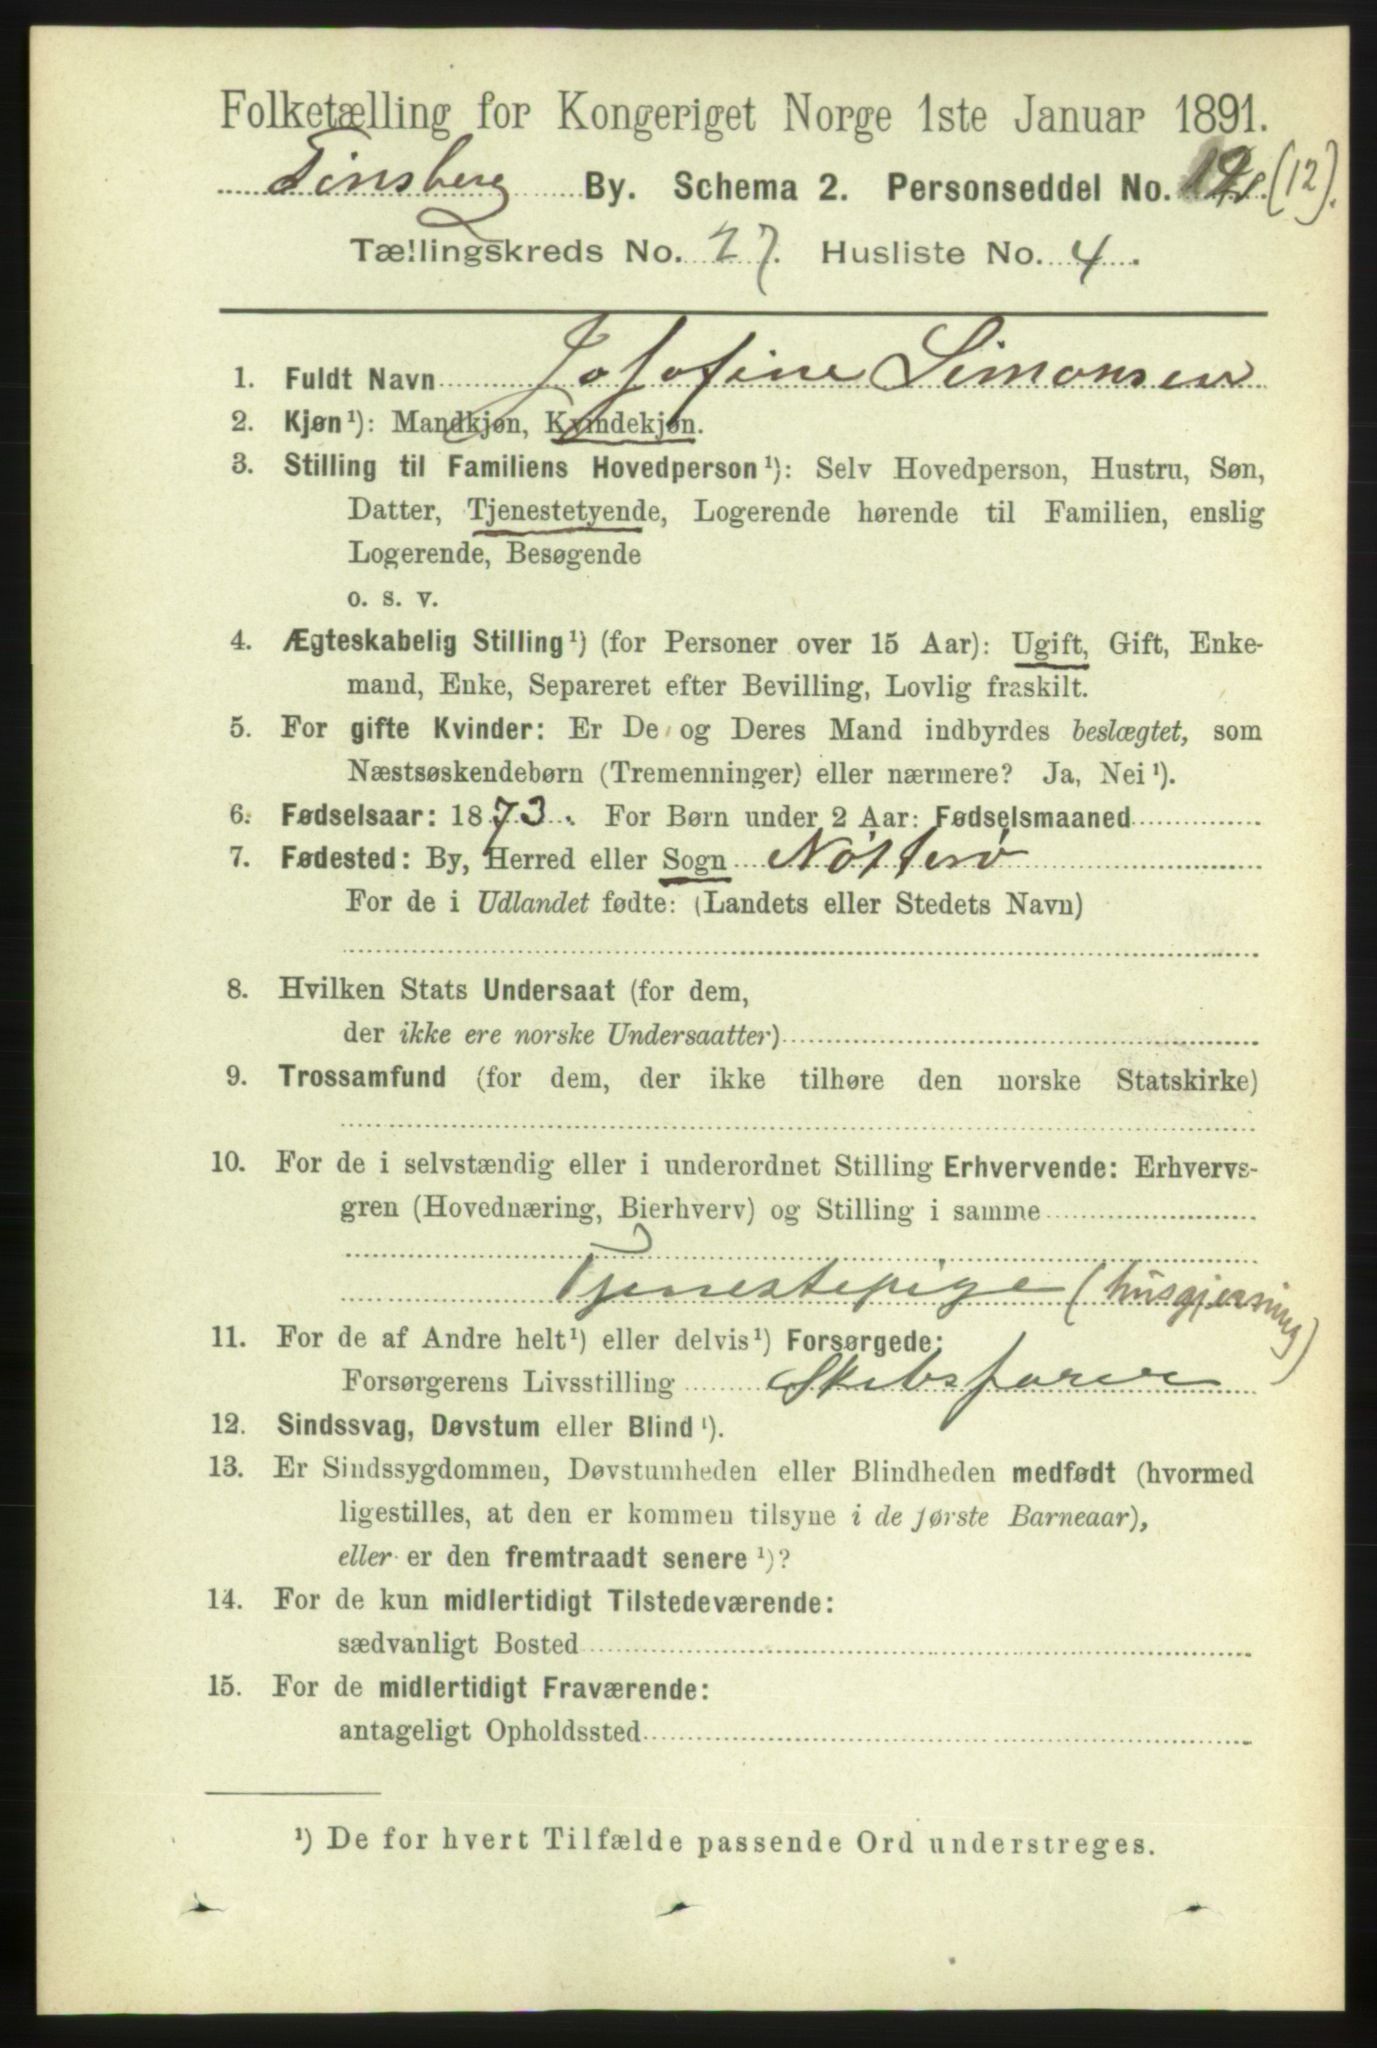 Folketælling for Kongeriget Norge 1ste Januar 1891.
Tønsberg By. Schema 2. Personseddel No. (12).
Tællingskreds No. 27. Husliste No. 4.
1. Fuldt Navn Josofine Simonsen
2. Kjøn¹): Mandkjøn, Kvindekjøn.
3. Stilling til Familiens Hovedperson¹): Selv Hovedperson, Hustru, Søn,
Datter, Tjenestetyende, Logerende hørende til Familien, enslig
Logerende, Besøgende
o. s. v.
4. Ægteskabelig Stilling¹) (for Personer over 15 Aar): Ugift, Gift, Enke-
mand, Enke, Separeret efter Bevilling, Lovlig fraskilt.
5. For gifte Kvinder: Er De og Deres Mand indbyrdes beslægtet, som
Næstsøskendebørn (Tremenninger) eller nærmere? Ja, Nei¹).
6. Fødselsaar: 1873. For Børn under 2 Aar: Fødselsmaaned
7. Fødested: By, Herred eller Sogn Nøtterø
For de i Udlandet fødte: (Landets eller Stedets Navn)
8. Hvilken Stats Undersaat (for dem,
der ikke ere norske Undersaatter)
9. Trossamfund (for dem, der ikke tilhøre den norske Statskirke)
10. For de i selvstændig eller i underordnet Stilling Erhvervende: Erhvervs-
gren (Hovednæring, Bierhverv) og Stilling i samme
Tjenestepige (husgjerning)
11. For de af Andre helt¹) eller delvis¹) Forsørgede:
Forsørgerens Livsstilling Skibsfører
12. Sindssvag, Døvstum eller Blind¹).
13. Er Sindssygdommen, Døvstumheden eller Blindheden medfødt (hvormed
ligestilles, at den er kommen tilsyne i de første Barneaar),
eller er den fremtraadt senere¹)?
14. For de kun midlertidigt Tilstedeværende:
sædvanligt Bosted
15. For de midlertidigt Fraværende:
antageligt Opholdssted
¹) De for hvert Tilfælde passende Ord understreges.